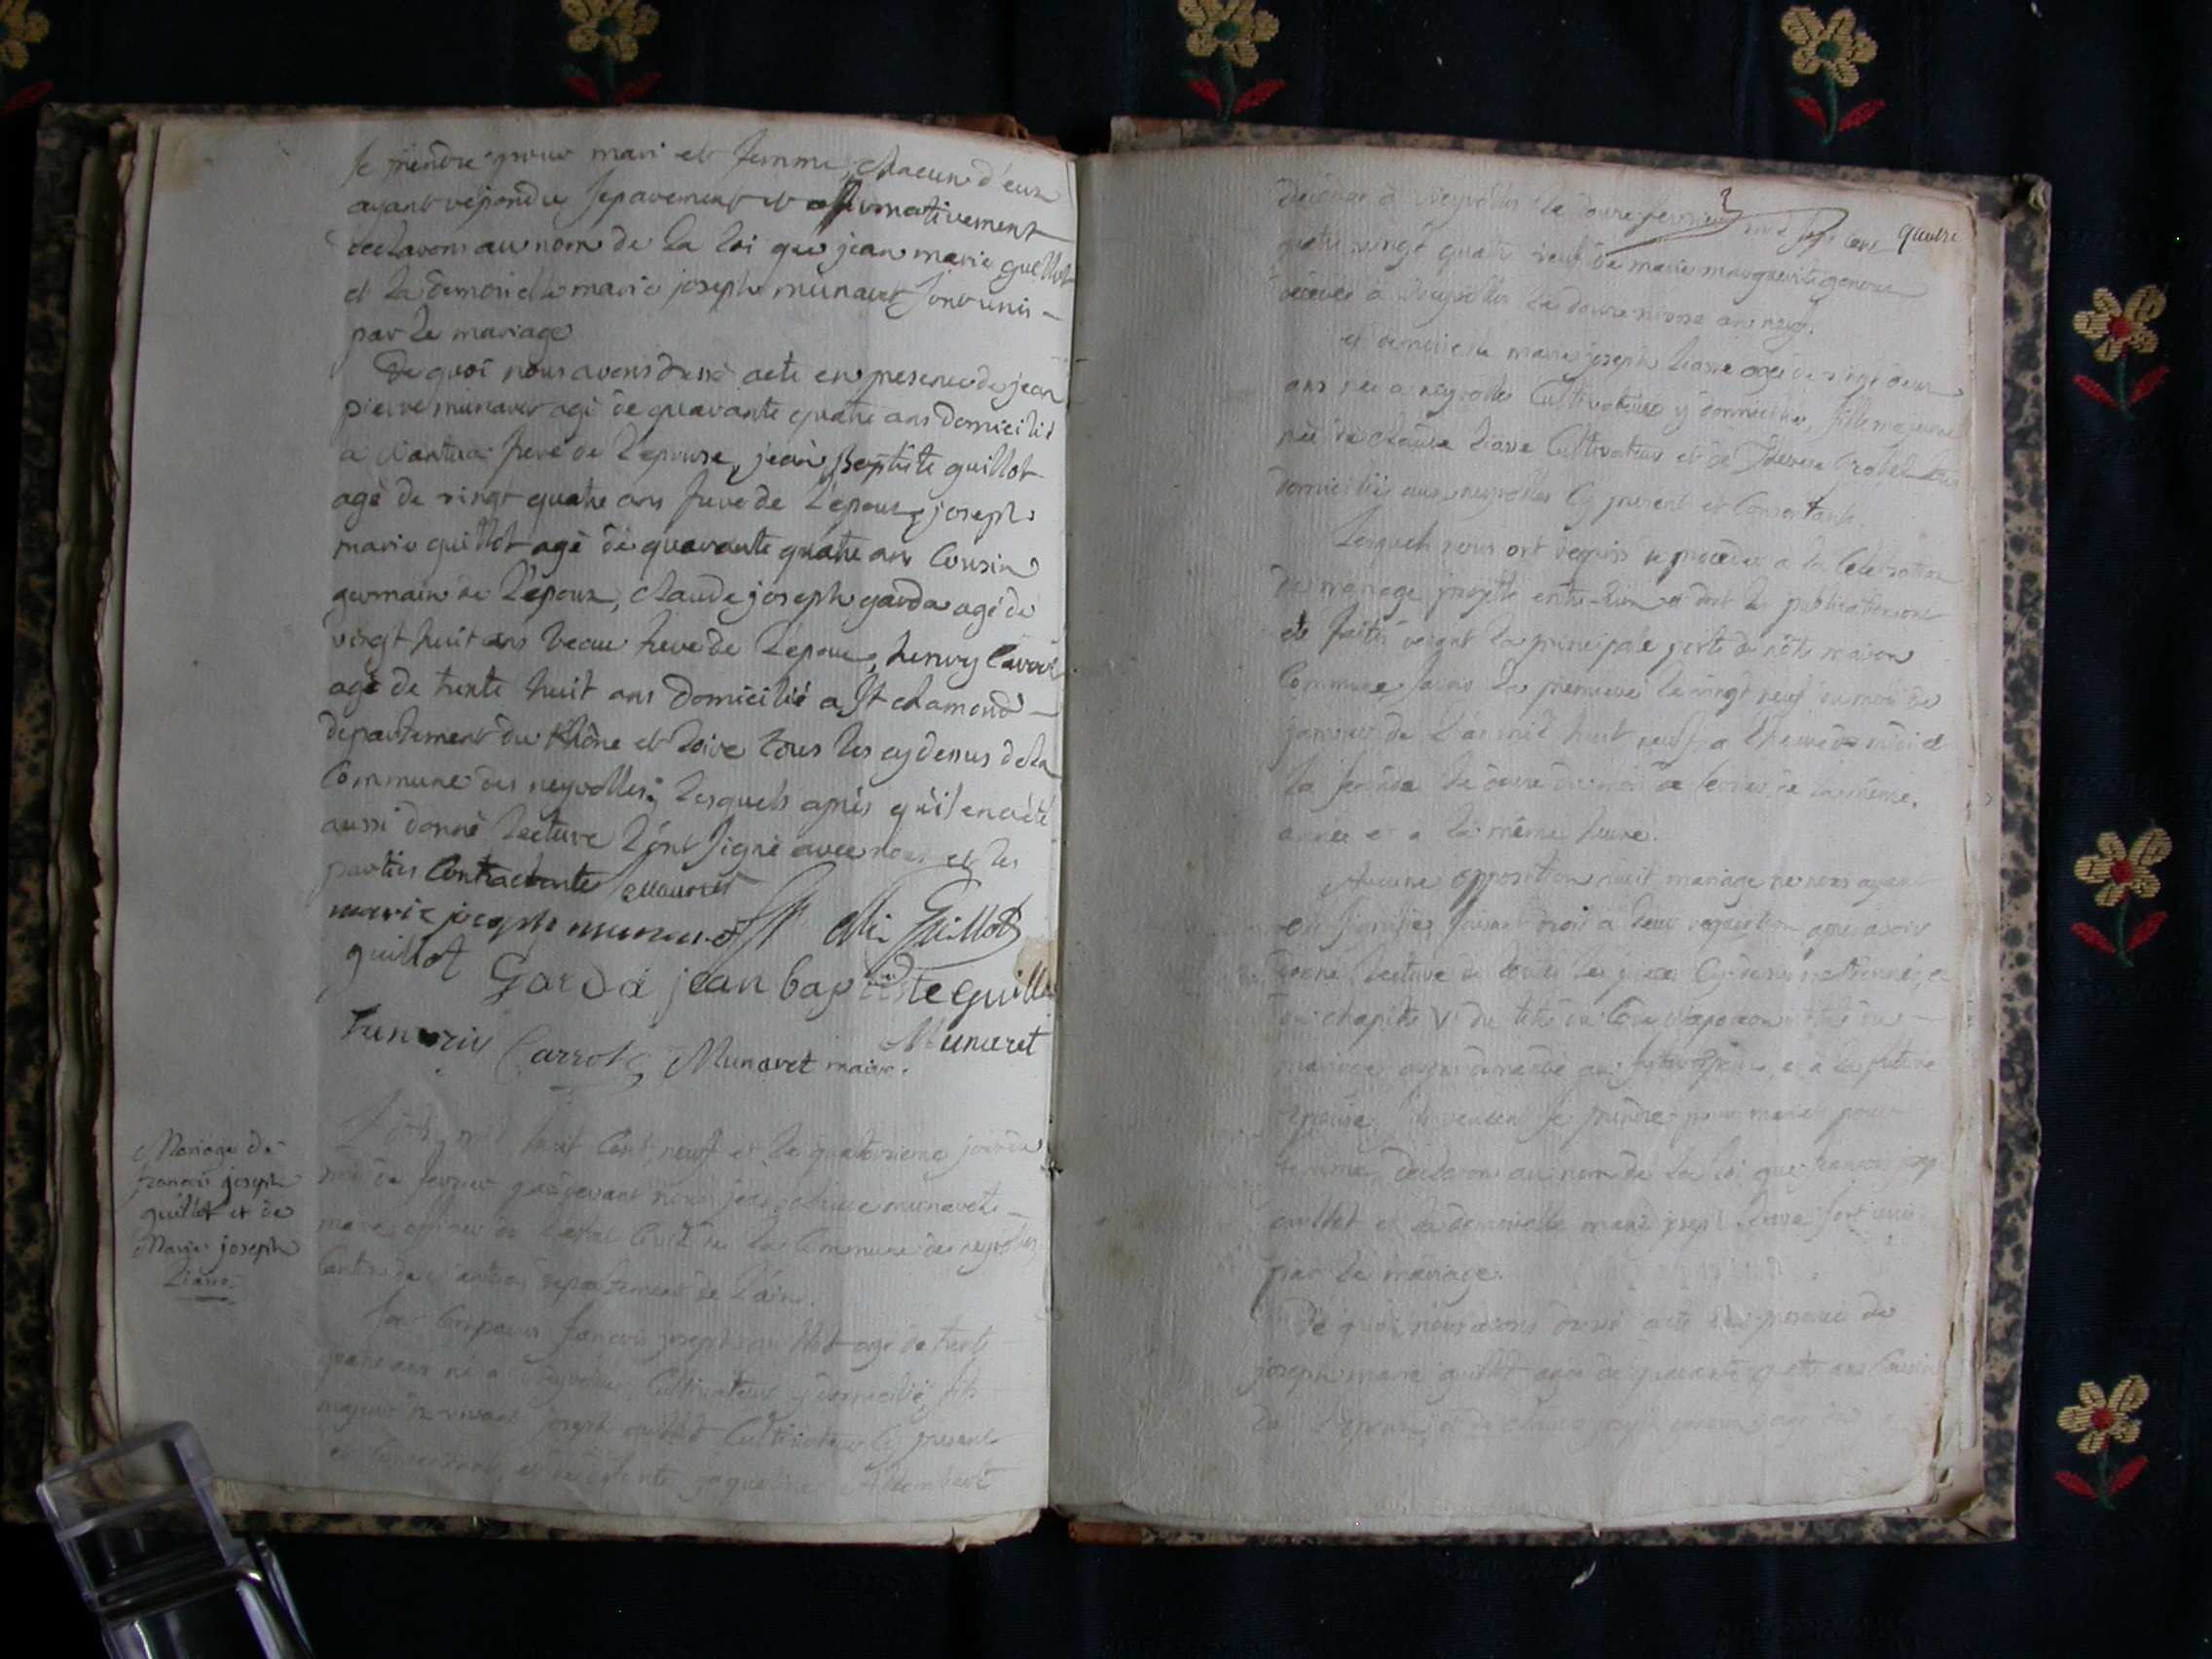 se prendre pour mari et femme, chacun d'eux
ayant repondu separement et affirmativement
declarons au nom de la loi que jean marie guillot
et la demoiselle marie joseph munaret sont unis
par le mariage
De quoi nous avons dressé acte en presence de jean
pierre munaret agé de quarante quatre ans domicilié
a Nantua frere de l'epouse, jean Baptiste guillot
agé de vingt quatre ans frere de l'epoux, joseph
marie guillot agé de quarante quatre ans Cousin
germain de l'epoux, claude joseph garda agé de
vingt huit ans beau frere de l'epoux, henry Carrot
agé de trente huit ans domicilié a St chamond
departement du Rhône et Loire tous les cydessus de la
Commune des neyrolles; lesquels après qu'il en a été
aussi donné lecture l'ont signé avec nous et les
parties Contractante
marie joseph munaret Guillot
guillot Garda jean baptiste guillo
Carrot Munaret maire. Munaret
Mariage de
francois joseph
guillot et de
Marie joseph
Liasse
L'an mil huit Cent neuf et le quatorzieme jour du
mois de fevrier pardevant nous jean munaret
maire officier de l'etat Civil de la Commune des neyrolles
Canton de nantua departement de l'ain.
Sont Comparus francois joseph guillot agé de trente
quatre ans né a Neyrolles Cultivateur y domicilié, fils
majeur de vivant joseph guillot Cultivateur Cy present
et Consentant, et de jaqueline Allombert
quatre
decedée a Neyrolles le douze fevrier mil sept cent
quatre vingt quatre veuf de marie marguerite
decedée a Neyrolles le douze nivose an neuf.
et demoiselle marie joseph Liasse agée de vingt deux
ans née a neyrolles Cultivateur y domiciliée, fille majeure
née de claude Liasse Cultivateur et de Therese
domiciliés aux neyrolles Cy present et Consentants.
Lesquels nous ont requis de proceder a la Celebration
du mariage projetté entre eux et dont les publications ont
été faites devant la principale porte de nôtre maison
Commune savoir la premiere le vingt neuf du mois de
janvier de l'an mil huit neuf a l'heure de midi et
la seconde le douze du mois de fevrier de la même
année et a la même heure.
Aucune opposition audit mariage ne nous ayant
eté signifiée faisant droit a leur requisition, après avoir
donné lecture de toutes les pieces Cy dessus mentionnées, et
du chapitre VI du titre du Code Napoleon intitulé du
mariage, avons demandé au futur epoux et a la future
epouse s'ils veulent se prendre pour mari et pour
femme, declarons au nom de la loi que francois joseph
guillot et la demoiselle marie joseph Liasse sont unis
par le mariage.
De quoi nous avons dressé acte en presence de
joseph marie guillot agé de quarante quatre ans Cousin
de l'epoux, et de claude joseph garda agé de